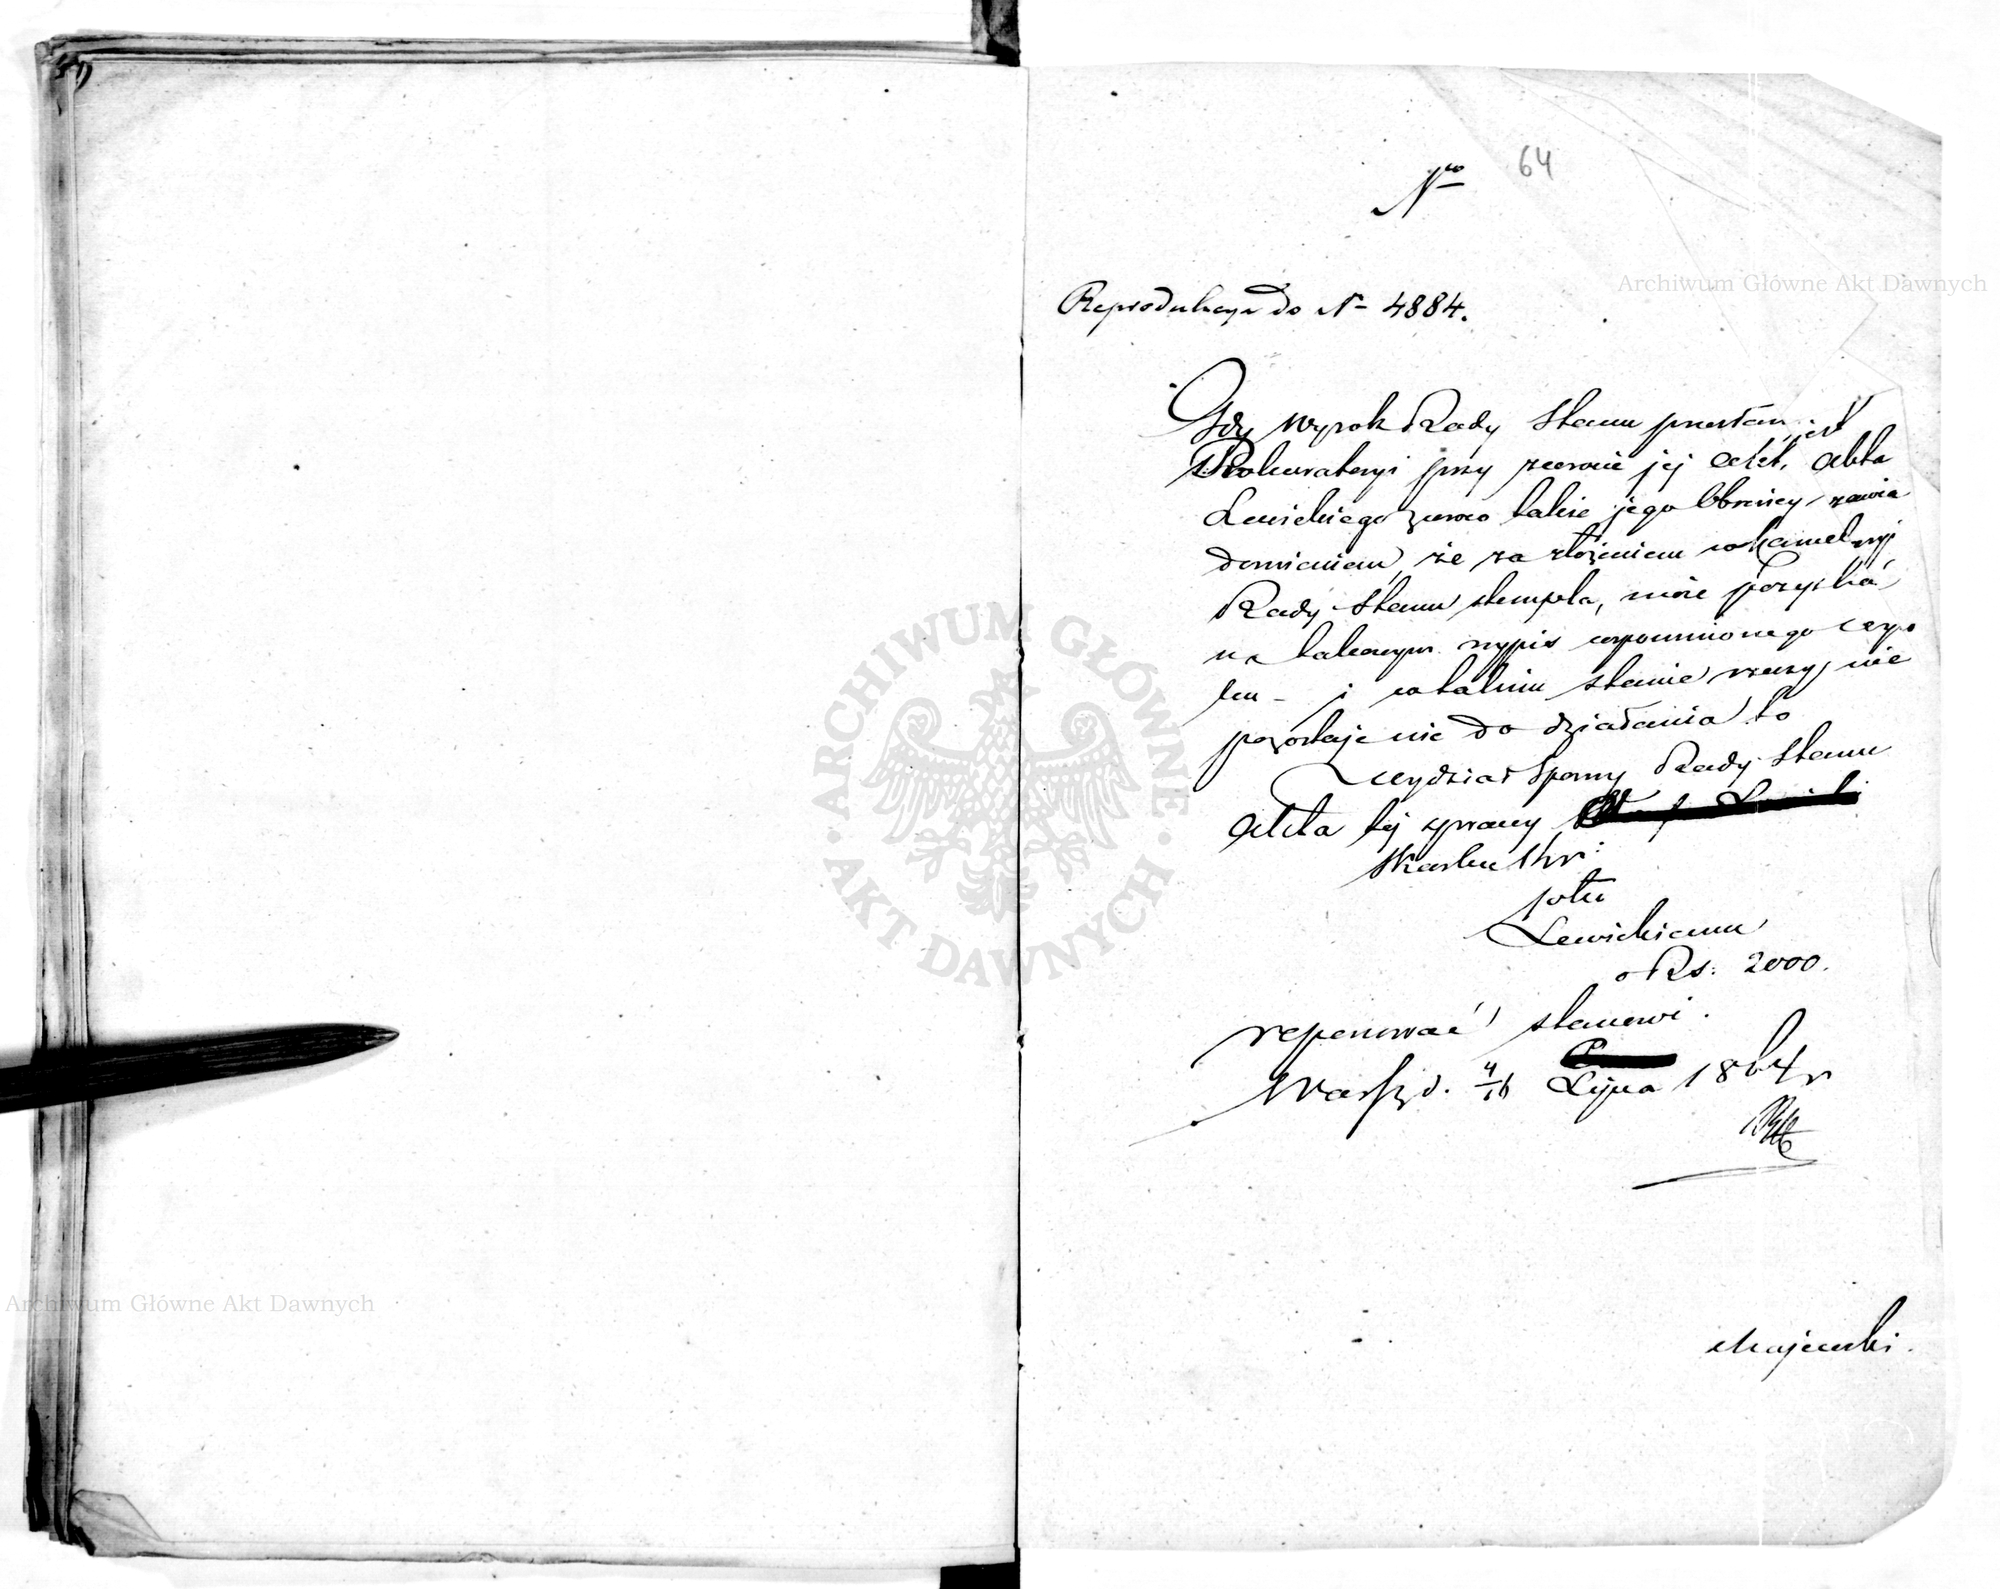 64
N<sup>ro</sup>
Archiwum Główne Akt Dawnych
Reprodukcya do N° 4884.
Gdy wyrok Rady Stanu przesłany jest
Prokuratoryi przy zwrocie jej Akt, Akta
Lewickiego zwrócono takie jego Obrońcy, zawia
domieniem, że za złożeniem w Kancelaryi
Rady Stanu stempla, może pozyskać
na takowym wypis wspomnionego wyro
ku – i w takim stanie rzeczy, nic
pozostaje nic do działania to
Wydział Sporny Rady Stanu
Akta tej sprawy
Skarbu Kr:
potu
Lewickiemu
o Rs: 2000.
reponować stanowi.
Warsz. d. 4/16 Lipca 1864 r
Majewski.
ARCHIWUM GŁÓWNE AKT DAWNYCH
Archiwum Główne Akt Dawnych